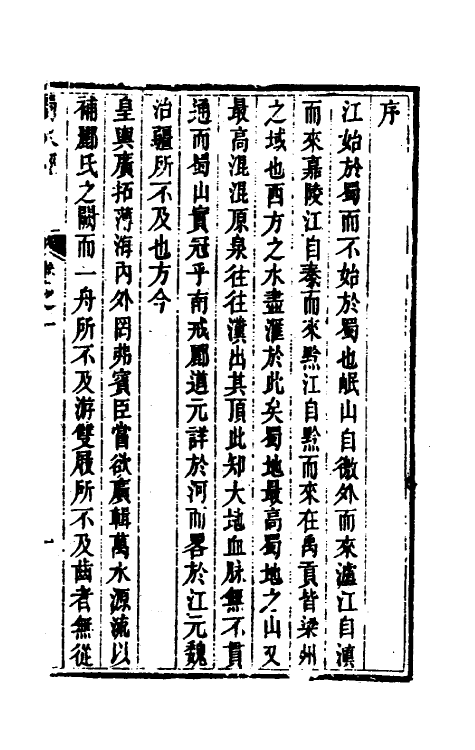 序
江始於蜀而不始於蜀也岷山自徼外而來瀘江自滇
而來嘉陵江自秦而來黔江自黔而來在禹貢皆梁州
之域也西方之水盡滙於此矣蜀地最高蜀地之山又
最高混混原泉往往濆出其頂此知大地血脉無不貫
通而蜀山實冠乎南戒酈道元詳於河而畧於江元魏
治疆所不及也方今
皇輿廣拓薄海內外罔弗賓臣嘗欲廣輯萬水源流以
補酈氏之闕而一舟所不及游雙屐所不及齒者無從